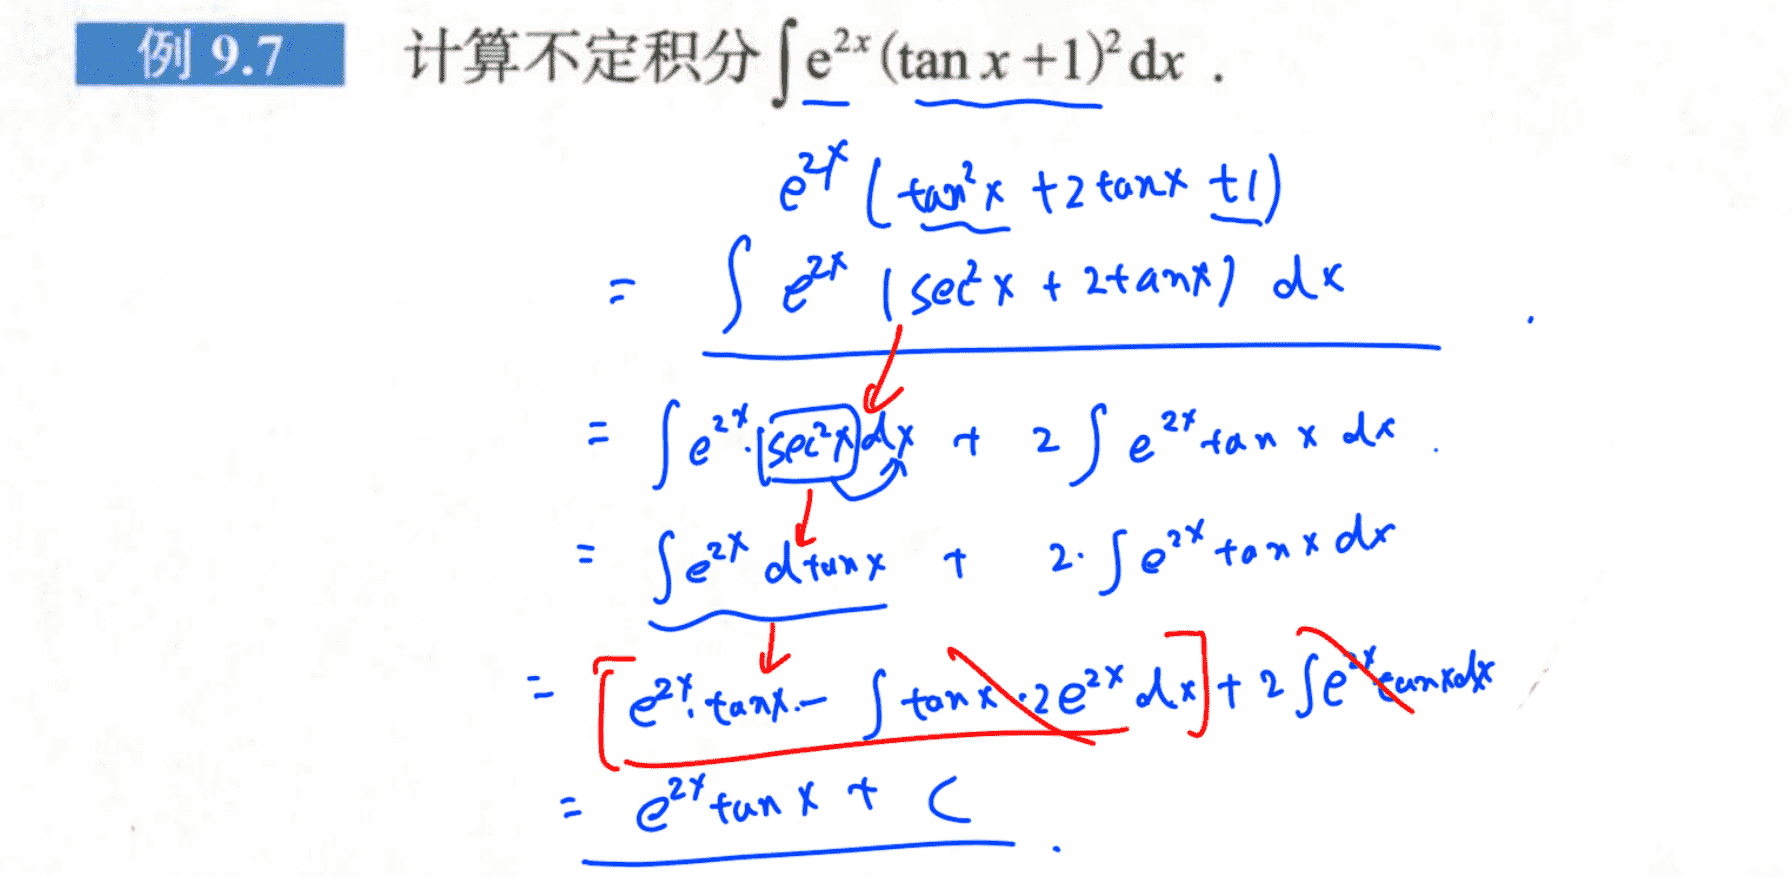 例 9.7 计算不定积分∫e²ˣ(tan x +1)²dx .
e²ˣ (tan²x +2tanx +1)
= ∫ e²ˣ (sec²x + 2tanx) dx
= ∫e²ˣ·(sec²x)dx + 2∫e²ˣtan x dx.
= ∫e²ˣ dtanx + 2·∫e²ˣtanx dx
= [e²ˣ·tanx·- ∫tanx·2e²ˣ dx]+ 2∫e²ˣtanxdx
= e²ˣtan x + C